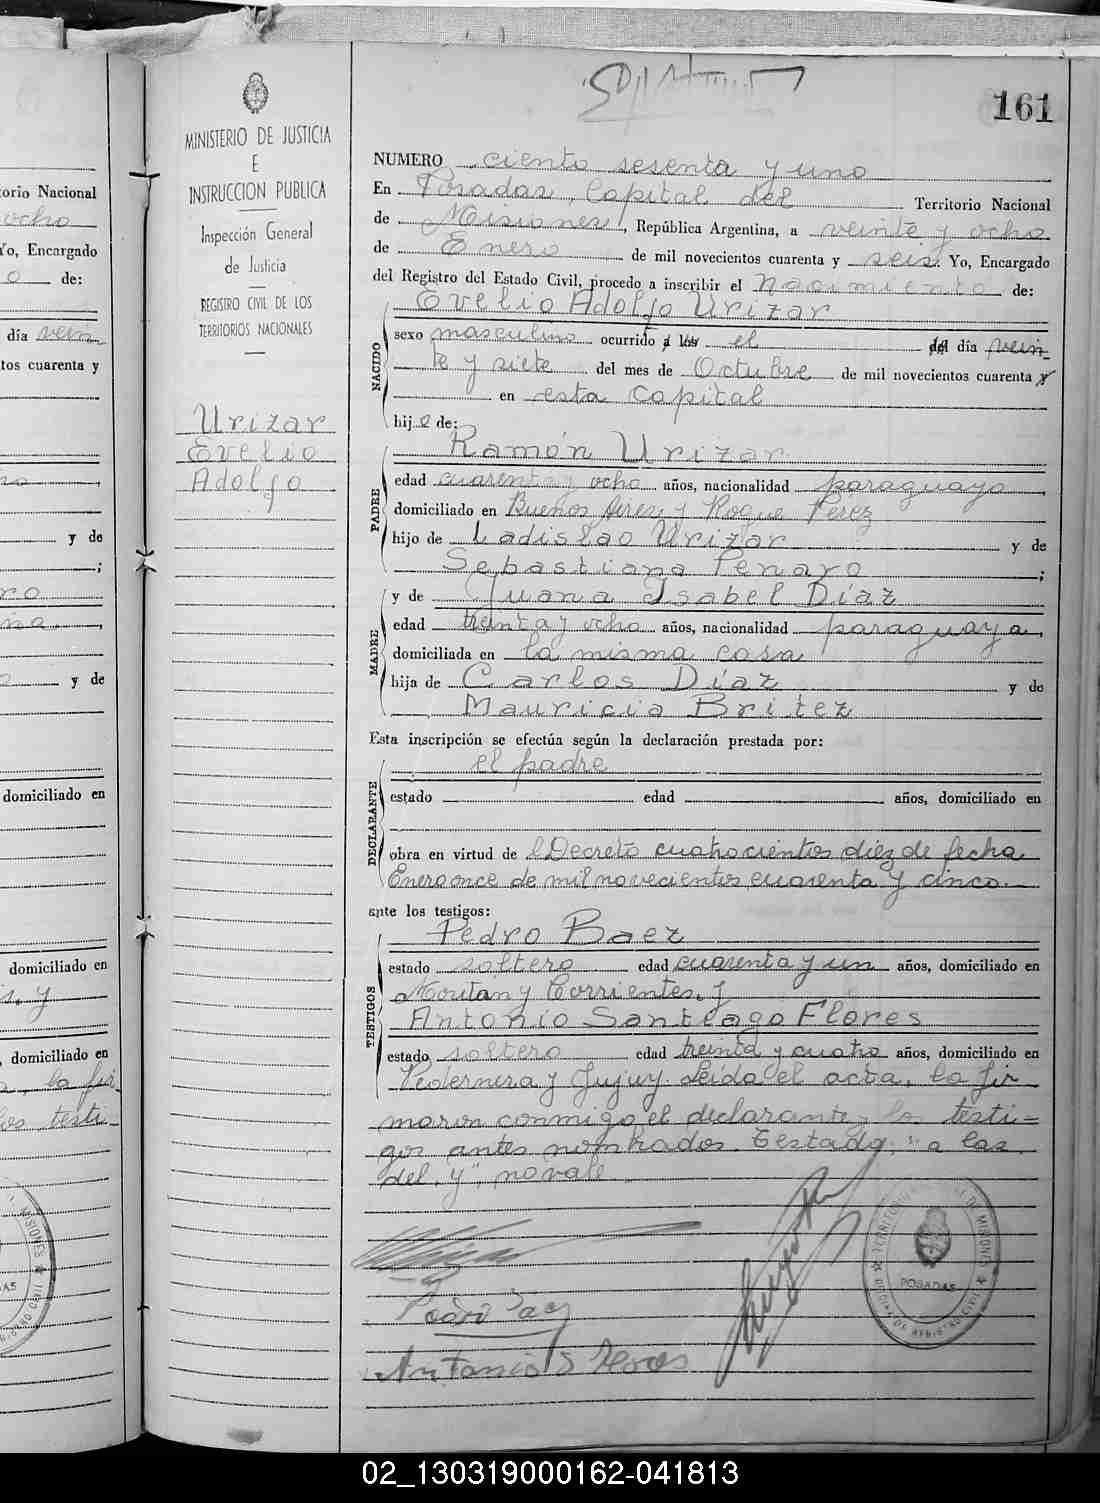 161
MINISTERIO DE JUSTICIA
E
INSTRUCCION PUBLICA
Inspección General
de Justicia
REGISTRO CIVIL DE LOS
TERRITORIOS NACIONALES
Urizar
Evelio
Adolfo
NUMERO ciento sesenta y uno
En Posadas, Capital del Territorio Nacional
de Misiones, República Argentina, a veinte y ocho
de Enero de mil novecientos cuarenta y seis. Yo, Encargado
del Registro del Estado Civil, procedo a inscribir el Nacimiento de:
NACIDO
Evelio Adolfo Urizar
sexo masculino ocurrido a las el del día vein
te y siete del mes de Octubre de mil novecientos cuarenta y
en esta Capital
hijo de:
PADRE
Ramón Urizar
edad cuarenta y ocho años, nacionalidad paraguayo,
domiciliado en Buenos Aires y Roque Perez
hijo de Ladislao Urizar y de
Sebastiana Penayo;
MADRE
y de Juana Isabel Díaz
edad treinta y ocho años, nacionalidad paraguaya,
domiciliada en la misma casa
hija de Carlos Díaz y de
Mauricia Britez
Esta inscripción se efectúa según la declaración prestada por:
DECLARANTE
el padre
estado edad años, domiciliado en
obra en virtud de l Decreto cuatrocientos diez de fecha
Enero once de mil novecientos cuarenta y cinco.
ante los testigos:
TESTIGOS
Pedro Baez
estado soltero edad cuarenta y un años, domiciliado en
y Corrientes, y
Antonio Santiago Flores
estado soltero edad treinta y cuatro años, domiciliado en
Pedernera y Jujuy. Leída el acta, la fir
maron conmigo el declarante y los testi=
gos antes nombrados. Testado: "a las
del, y", no vale
Antonio S Flores
POSADAS
torio Nacional
ocho
Yo, Encargado
o de:
día vein
tos cuarenta y
y de
;
y de
domiciliado en
domiciliado en
domiciliado en
la fir
los testi
MISIONES
02_130319000162-041813